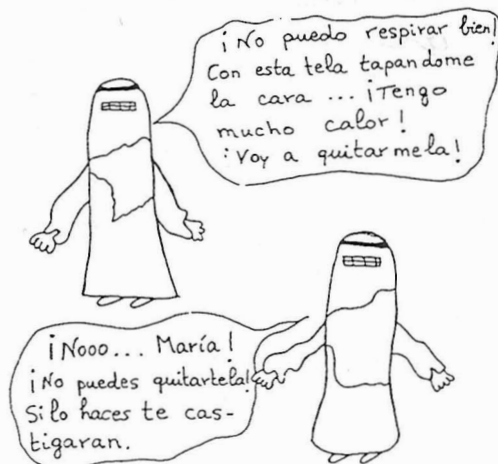 ¡No puedo respirar bien!
Con esta tela tapandome
la cara ... ¡Tengo
mucho calor!
¡Voy a quitarmela!
¡Nooo... María!
¡No puedes quitartela!
Si lo haces te cas-
tigaran.